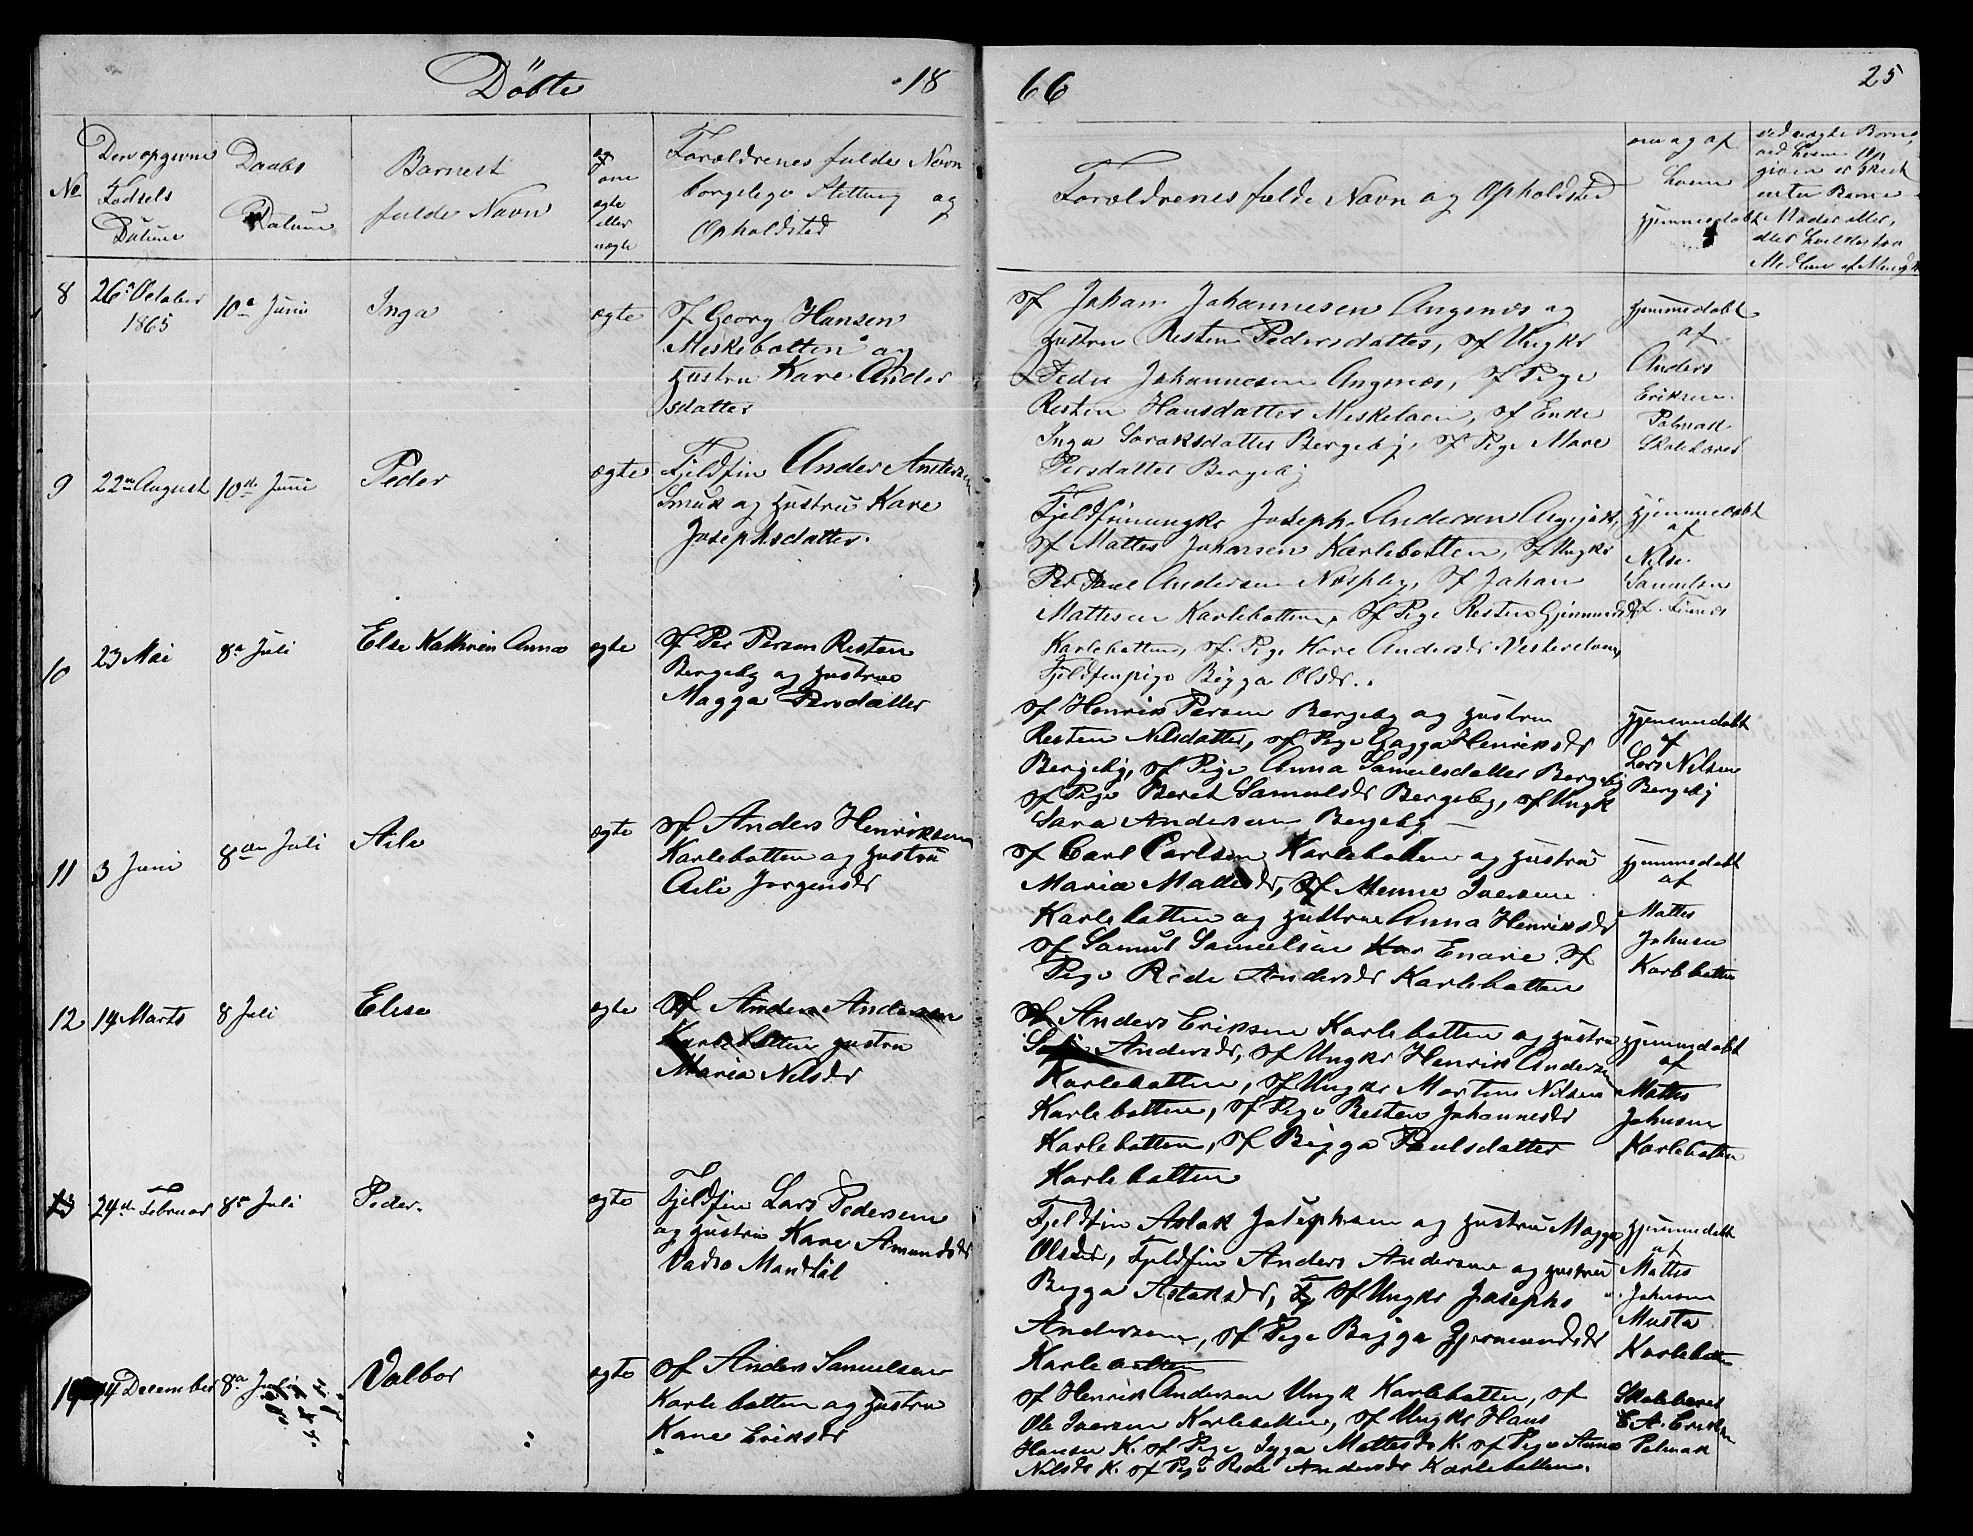 Döbte
18
66
25
No
Den opgivne
Fødsels
Datum
Daabs
Datum
Barnest
fulde Navn
om
ægte
eller
uægte
Forældrenes fulde Navn
borgelige Stilling og
Opholdsted
Forældrenes fulde Navn og Opholdsted
om og af
hvem
hjemmedøbt
ved uægte Børns,
given er skeet
enten Barne
Moder eller,
8
26 October
1865
10 Juni
Inga
ægte
Sf Georg Hansen
Meskebatten og
Hustru Kare Ander
sdatter
Sf Johan Johannesen Angsnæs og
Hustru Resten Pedersdatter, Sf Ungkr
Peder Johannesen Angsnæs, Sf Pige
Resten Hansdatter Meskelven, Sf Enke
Inga Saraksdatter Bergeby, Sf Pige Mare
Persdatter Bergeby
hjemmedøbt
af
Anders
Eriksen
Palmak
Skolelærer
9
22 August
10de Juni
Peder
ægte
Fjeldfin Ander Andersen
Smuk og Hustru Kare
Josephsdatter.
Fjeldfinungkr Joseph Andersen
Sf Mattes Johansen Karlebotten, Sf Ungkr
Per Povel Andersen Næseby, Sf Johan
Mattesen Karlebotten, Sf Pige Resten
Karlebotten, Sf. Pige Kare Andersdr
Fjeldfinpige Bigga Olsdr.
hjemmedøbt
af
Nils
Samulsen
10
23 Mai
8 Juli
Else Kathrin Anna
ægte
Sf Per Persen Resten
Bergeby og Hustrue
Magga Persdatter
Sf Henrik Persen Bergeby og Hustru
Resten Nilsdatter, Sf Pige Gagga Henriksdr
Bergeby, Sf Pige Anna Samuelsdatter Bergeby
Sf Pige Beret Samulsdr Bergeby, Sf Ungk
Sara Andersen Bergeby
hjemmedøbt
af
Lars Nilsen
Bergeby
11
3 Juni
8de Juli
Aile
ægte
Sf Anders Henriksen
Karlebotten og Hustru
Aili Jorgensdr
Sf Carl Carlsen Karlebotten og Hustru
Maria Mattesdr, Sf Menne Iversen
Karlebotten og Hustrue Anna Henriksdr
Sf Samul Samuelsen Kar Enarie. Sf
Pige Ride Andersdr Karlebotten
hjemmedøbt
af
Mattes
Johnsen
Karlebotten
12
14 Marts
8 Juli
Elise
ægte
Sf Anders Andersen
Karlebotten Hustru
Maria Nilsdr
Sf Anders Eriksen Karlebotten og Hustru
Andersdr, Sf Ungkr Henrik Andersen
Karlebotten, Sf Ungkr Morten Nilsen
Karlebotten, Sf Pige Resten Johannesdr
Karlebotten, Sf Bigga Paulsdatter
Karlebotten
hjemmedøbt
af
Mattes
Johnsen
Karlebotten
13
24de Februar
8 Juli
Peder.
ægte
Fjeldfin Lars Pedersen
og Hustru Kare Amundsdr
Vadsø Mandtal
Fjeldfin Aslak Josephsen og Hustru Magga
Olsdr, Fjeldfin Anders Andersen og Hustru
Bigga Aslaksdr, Sf Ungkr Josephs
Andersen, Sf Pige Bigga Gjermundsdr
Karlebotten
hjemmedøbt
af
Mattes
Johnsen
Musta
Karlebotten
14
4 December
8 Juli
Valbor
ægte
Sf Anders Samuelsen
Karlebotten og Hustru
Kane Eriksdr
Sf Henrik Andersen Ungk Karlebotten, Sf
Ole Iversen Karlebotten, Sf Ungkr Hans
Hansen K. Sf Pige Inga Mattesdr K. Sf Pige Anna
Nilsdr K. Sf Pige Ride Andersdr Karlebotten.
Skolelærer
A. Eriksen
Palmak